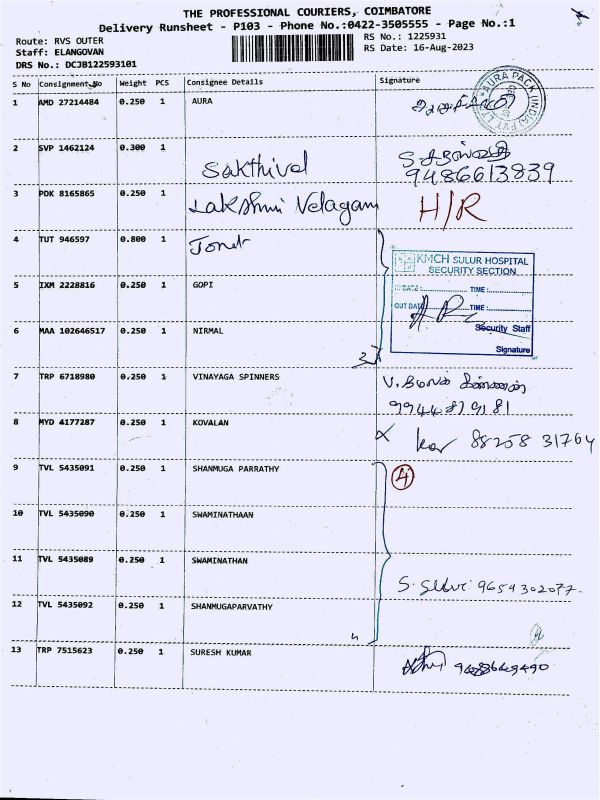 THE PROFESSIONAL COURIERS, COIMBATORE
Delivery Runsheet - P103 - Phone No.:0422-3505555 - Page No.:1
Route: RVS OUTER
Staff: ELANGOVAN
DRS No.: DCJB122593101
RS No.: 1225931
RS Date: 16-Aug-2023
S No Consignment No Weight PCS Consignee Details Signature
1 AMD 27214484 0.250 1 AURA
AURA PACK (INDIA) PVT LT
2 SVP 1462124 0.300 1 Sakthivel
9486613839
3 PDK 8165865 0.250 1 Lakshmi Velagam H/R
4 TUT 946597 0.800 1
KMCH SULUR HOSPITAL
SECURITY SECTION
5 IXM 2228816 0.250 1 GOPI
IN DATE: TIME:
OUT DATE TIME:
6 MAA 102646517 0.250 1 NIRMAL
Security Staff
Signature
7 TRP 6718980 0.250 1 VINAYAGA SPINNERS
8 MYD 4177287 0.250 1 KOVALAN
88258 31764
9 TVL 5435091 0.250 1 SHANMUGA PARRATHY 4
10 TVL 5435090 0.250 1 SWAMINATHAAN
11 TVL 5435089 0.250 1 SWAMINATHAN
S. Selvi 9654302077
12 TVL 5435092 0.250 1 SHANMUGAPARVATHY
4
13 TRP 7515623 0.250 1 SURESH KUMAR